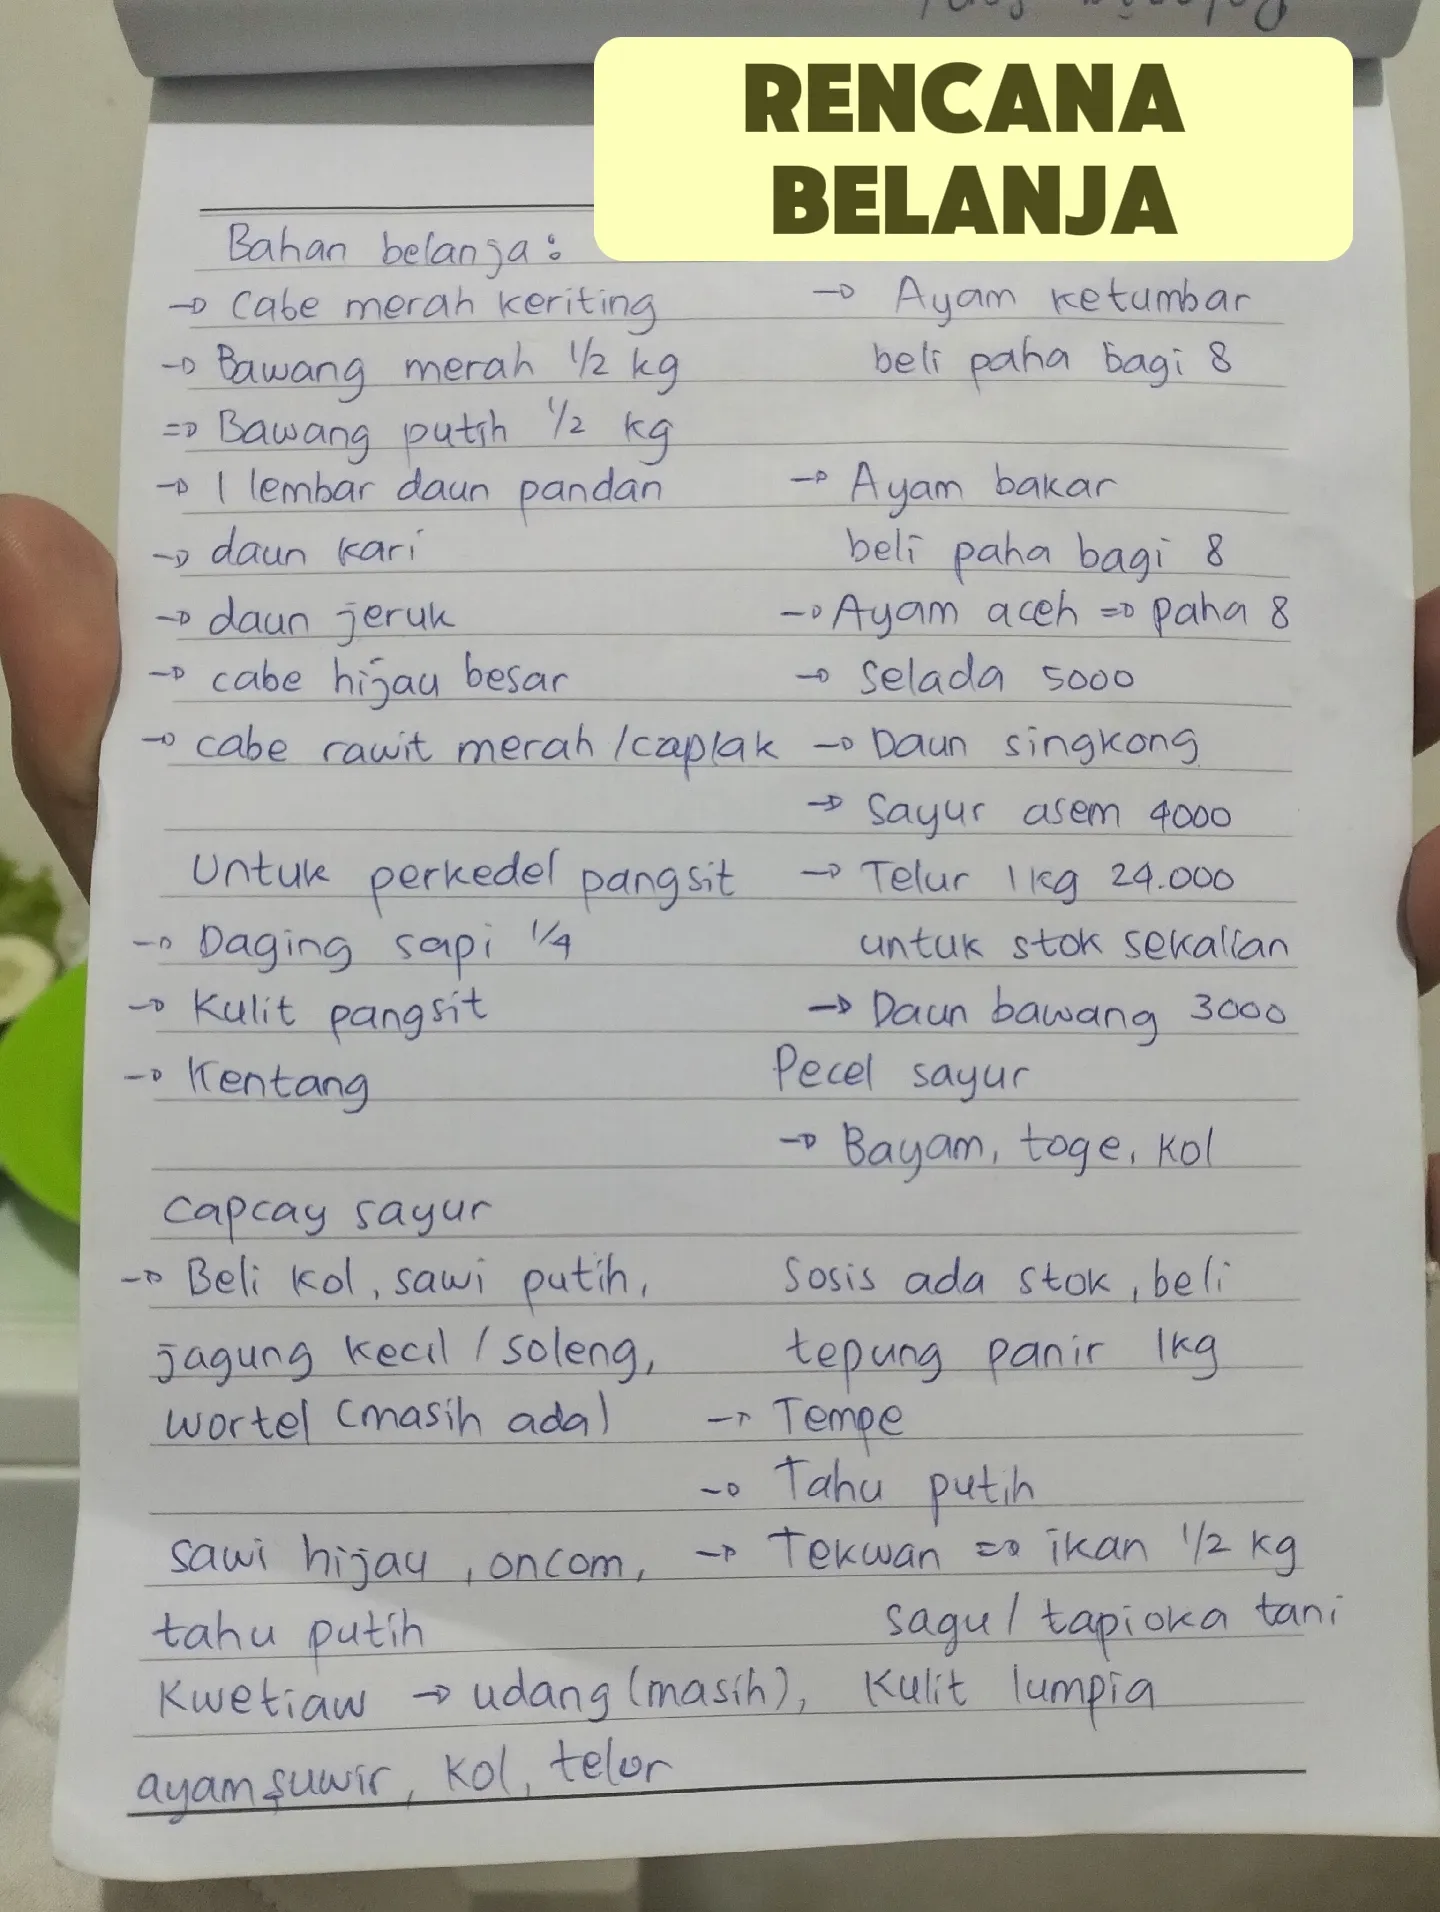 RENCANA
BELANJA
Bahan belanja :
→ Cabe merah keriting
→ Bawang merah 1/2 kg
⇒ Bawang putih 1/2 kg
→ 1 lembar daun pandan
→ daun kari
→ daun jeruk
→ cabe hijau besar
→ cabe rawit merah /caplak
Untuk perkedel pangsit
→ Daging sapi 1/4
→ Kulit pangsit
→ Kentang
Capcay sayur
→ Beli kol, sawi putih,
jagung kecil / soleng,
wortel (masih ada)
sawi hijau, oncom,
tahu putih
Kwetiaw → udang (masih),
ayam suwir, kol, telor
→ Ayam ketumbar
beli paha bagi 8
→ Ayam bakar
beli paha bagi 8
→ Ayam aceh ⇒ paha 8
→ Selada 5000
→ Daun singkong
→ Sayur asem 4000
→ Telur 1 kg 24.000
untuk stok sekalian
→ Daun bawang 3000
Pecel sayur
→ Bayam, toge, kol
Sosis ada stok, beli
tepung panir 1kg
→ Tempe
→ Tahu putih
→ Tekwan ⇒ ikan 1/2 kg
sagu / tapioka tani
Kulit lumpia